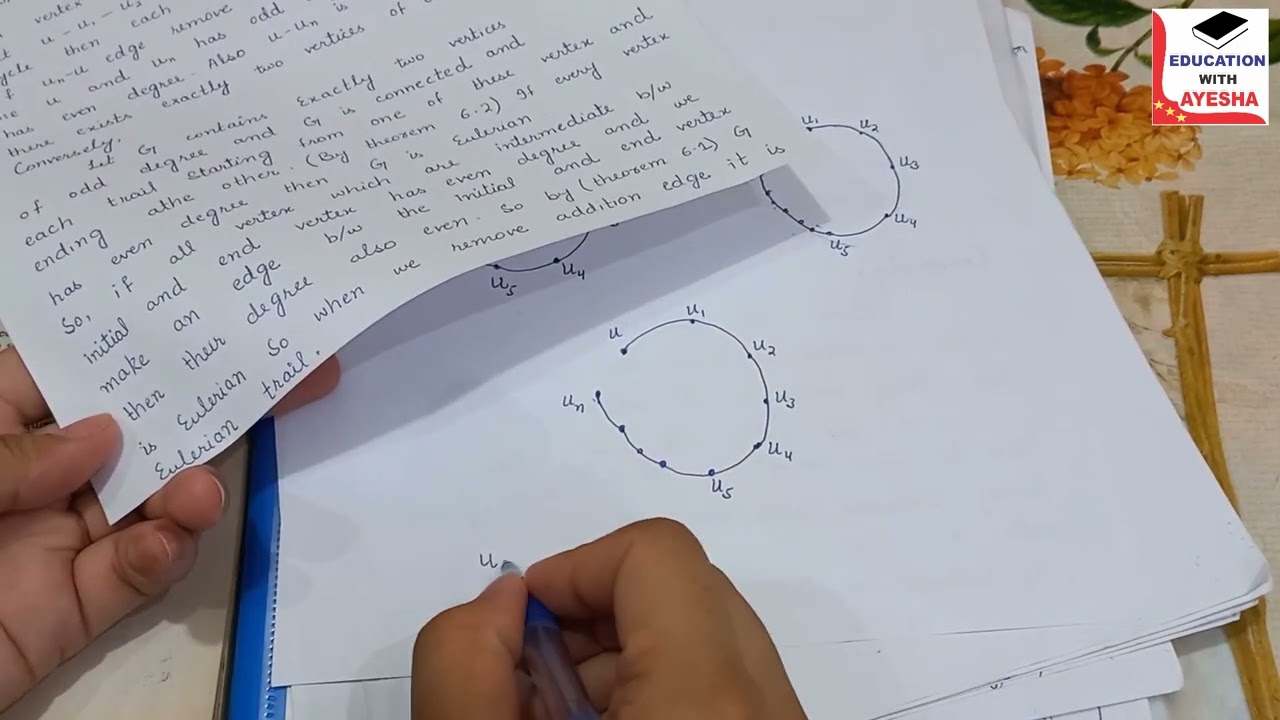 vertex
u - u1 - u2
then each
un-u edge remove
u and un has odd
has even degree. Also u-un is
there exists exactly two vertices of
Conversely,
Let G contains Exactly two vertices
of odd degree and G is connected and
each trail starting from one of these vertex and
ending athe other. (By theorem 6.2) If every vertex
has even degree then G is Eulerian
So, if all vertex which are intermediate b/w
initial and end vertex has even degree and we
make an edge b/w the initial and end vertex
then their degree also even. So by (theorem 6.2) G
is Eulerian So when we remove addition edge it is
Eulerian trail.
EDUCATION
WITH
AYESHA
u1
u2
u3
u4
u5
u4
u5
u
u1
u2
u3
u4
u5
un
u